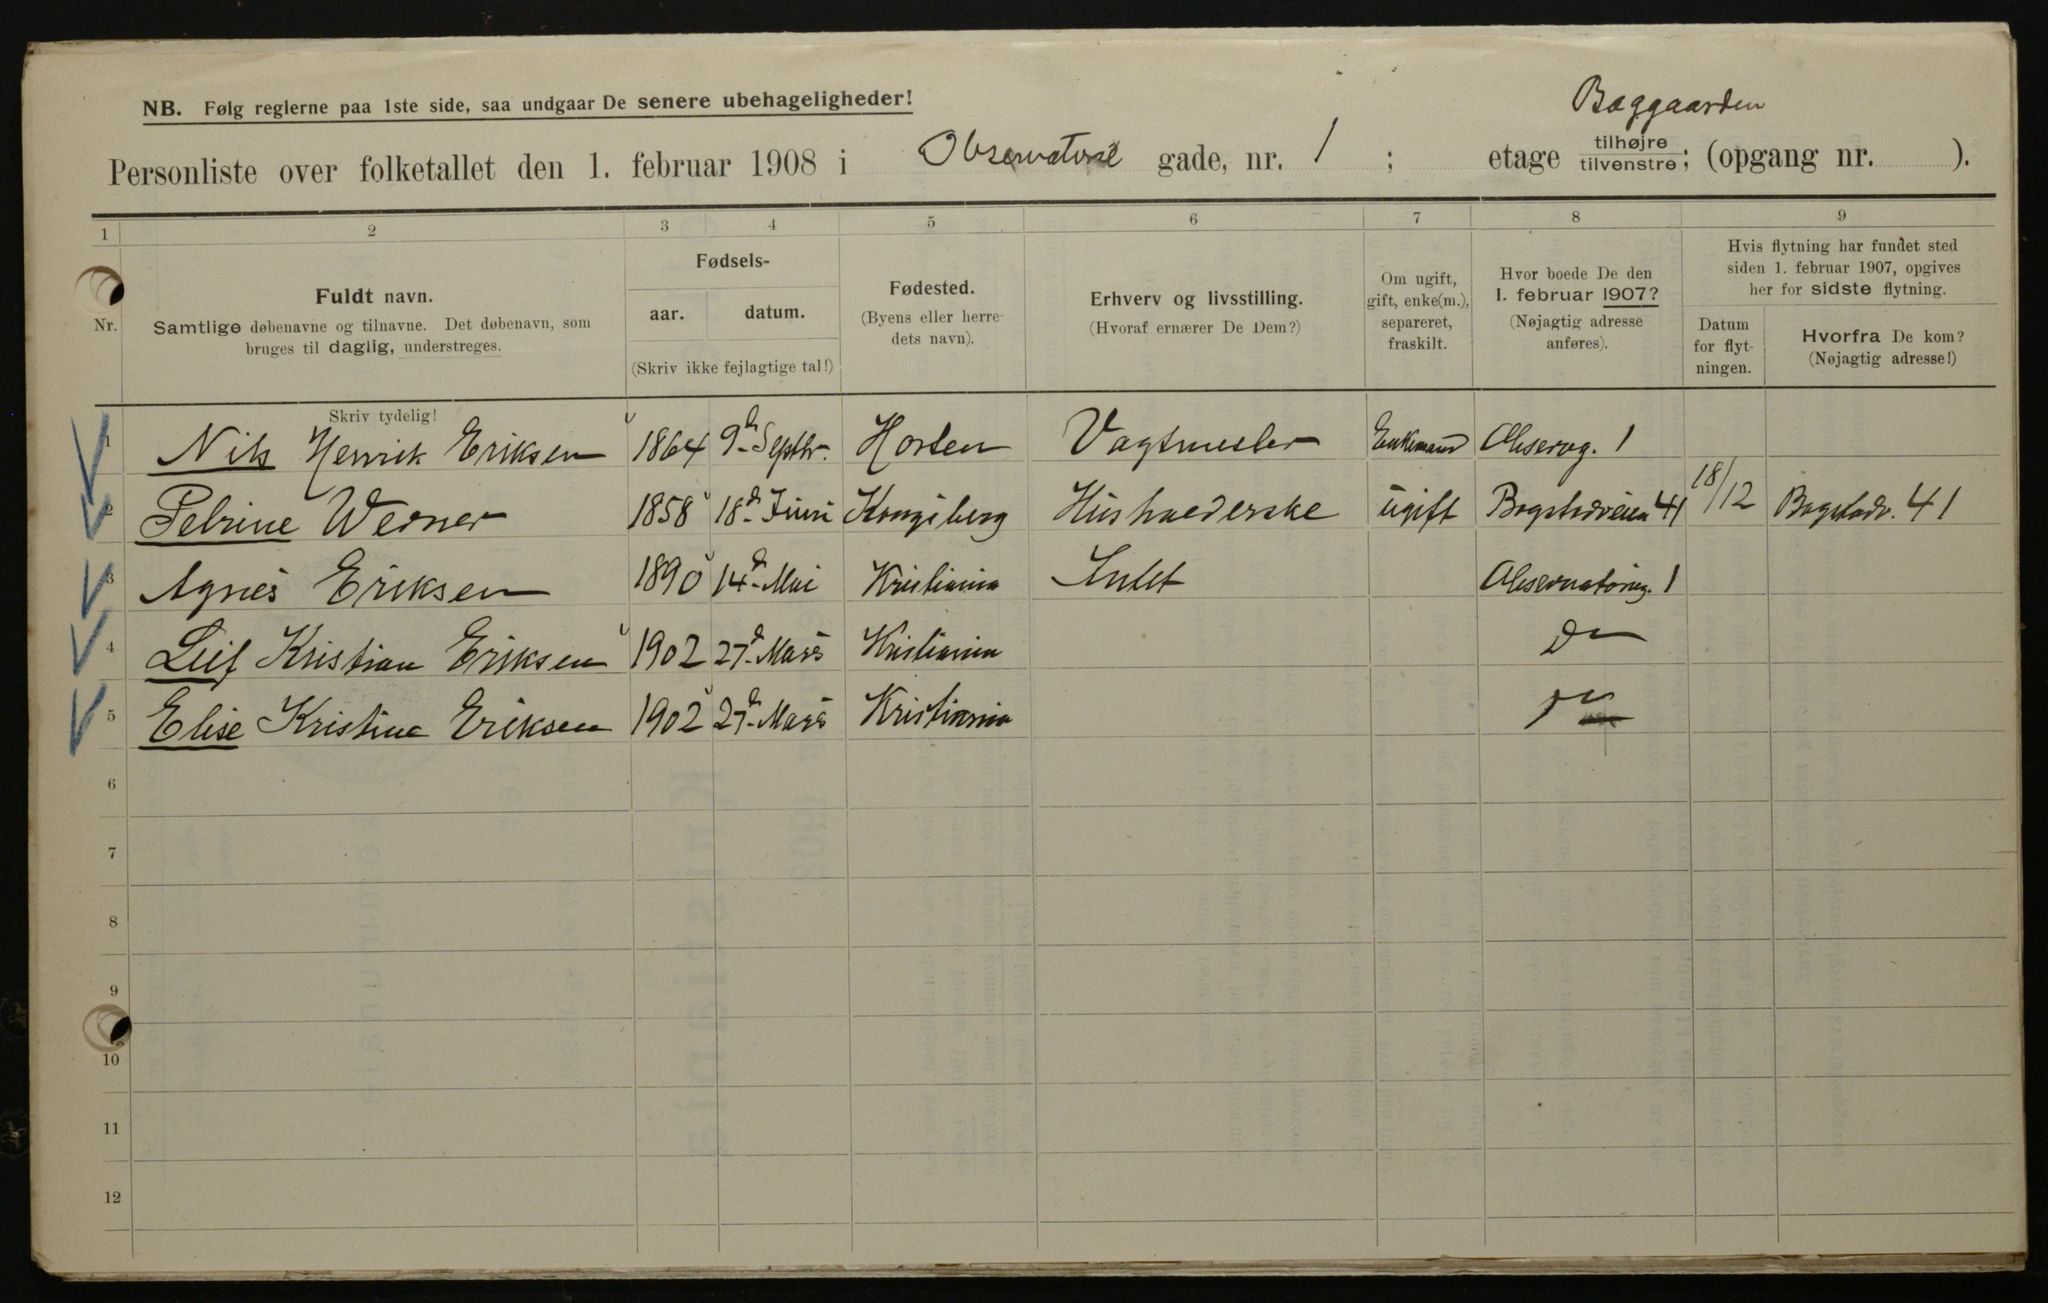 NB. Følg reglerne paa 1ste side, saa undgaar De senere ubehageligheder!
Baggaarden
Personliste over folketallet den 1. februar 1908 i Observatorie gade, nr. 1 ; etage tilhøjre tilvenstre; (opgang nr. ).
1 2 3 4 5 6 7 8 9
Nr.
Fuldt navn.
Samtlige døbenavne og tilnavne. Det døbenavn, som
bruges til daglig, understreges.
Fødsels-
aar. datum.
(Skriv ikke fejlagtige tal!)
Fødested.
(Byens eller herre-
dets navn).
Erhverv og livsstilling.
(Hvoraf ernærer De Dem?)
Om ugift,
gift, enke(m.),
separeret,
fraskilt.
Hvor boede De den
1. februar 1907?
(Nøjagtig adresse
anføres).
Hvis flytning har fundet sted
siden 1. februar 1907, opgives
her for sidste flytning.
Datum
for flyt-
ningen.
Hvorfra De kom?
(Nøjagtig adresse!)
Skriv tydelig!
1 Nils Henrik Eriksen 1864 9de Septbr. Horten Vagtmester Enkemand Observg. 1
2 Petrine Werner 1858 18de Juni Kongsberg Husholderske ugift Bogstadveien 41 18/12 Bogstadv. 41
3 Agnes Eriksen 1890 14de Mai Kristiania Intet Observatorieg. 1
4 Leif Kristian Eriksen 1902 27de Mars Kristiania Do
5 Elise Kristine Eriksen 1902 27de Mars Kristiania Do
6
7
8
9
10
11
12